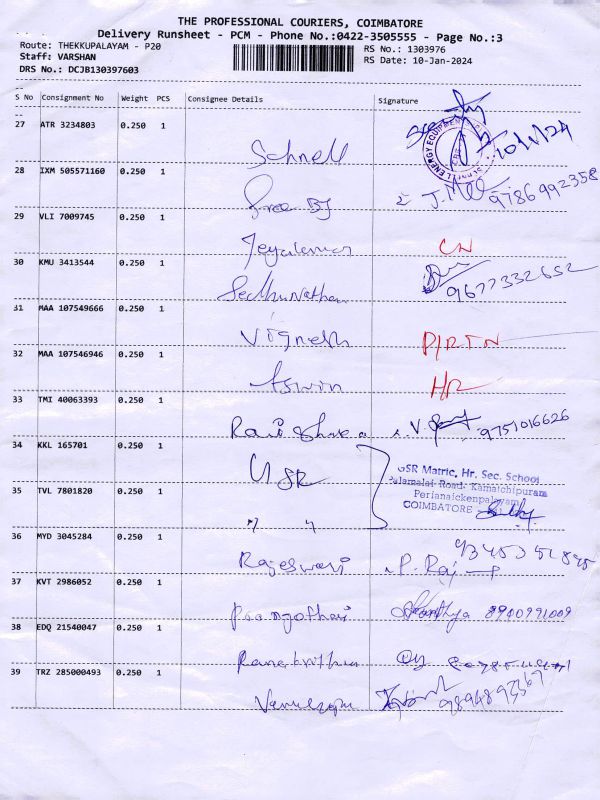 THE PROFESSIONAL COURIERS, COIMBATORE
Delivery Runsheet - PCM - Phone No.:0422-3505555 - Page No.:3
Route: THEKKUPALAYAM - P20
RS No.: 1303976
Staff: VARSHAN
RS Date: 10-Jan-2024
DRS No.: DCJB130397603
S No Consignment No Weight PCS Consignee Details Signature
27 ATR 3234803 0.250 1
Schnell 10/1/24
28 IXM 505571160 0.250 1
Free 9786992358
29 VLI 7009745 0.250 1
Jeyakumar CN
30 KMU 3413544 0.250 1
9677332652
31 MAA 107549666 0.250 1
Vignesh D/RTN
32 MAA 107546946 0.250 1
Aswin HR
33 TMI 40063393 0.250 1
9751016626
34 KKL 165701 0.250 1
GSR
GSR Matric. Hr. Sec. School
Palamalai Road, Kamatchipuram
Perianaickenpalayam
COIMBATORE
35 TVL 7801820 0.250 1
" "
36 MYD 3045284 0.250 1
Rajeswari P. Raj
37 KVT 2986052 0.250 1
Poongothai 8940991009
38 EDQ 21540047 0.250 1
39 TRZ 285000493 0.250 1